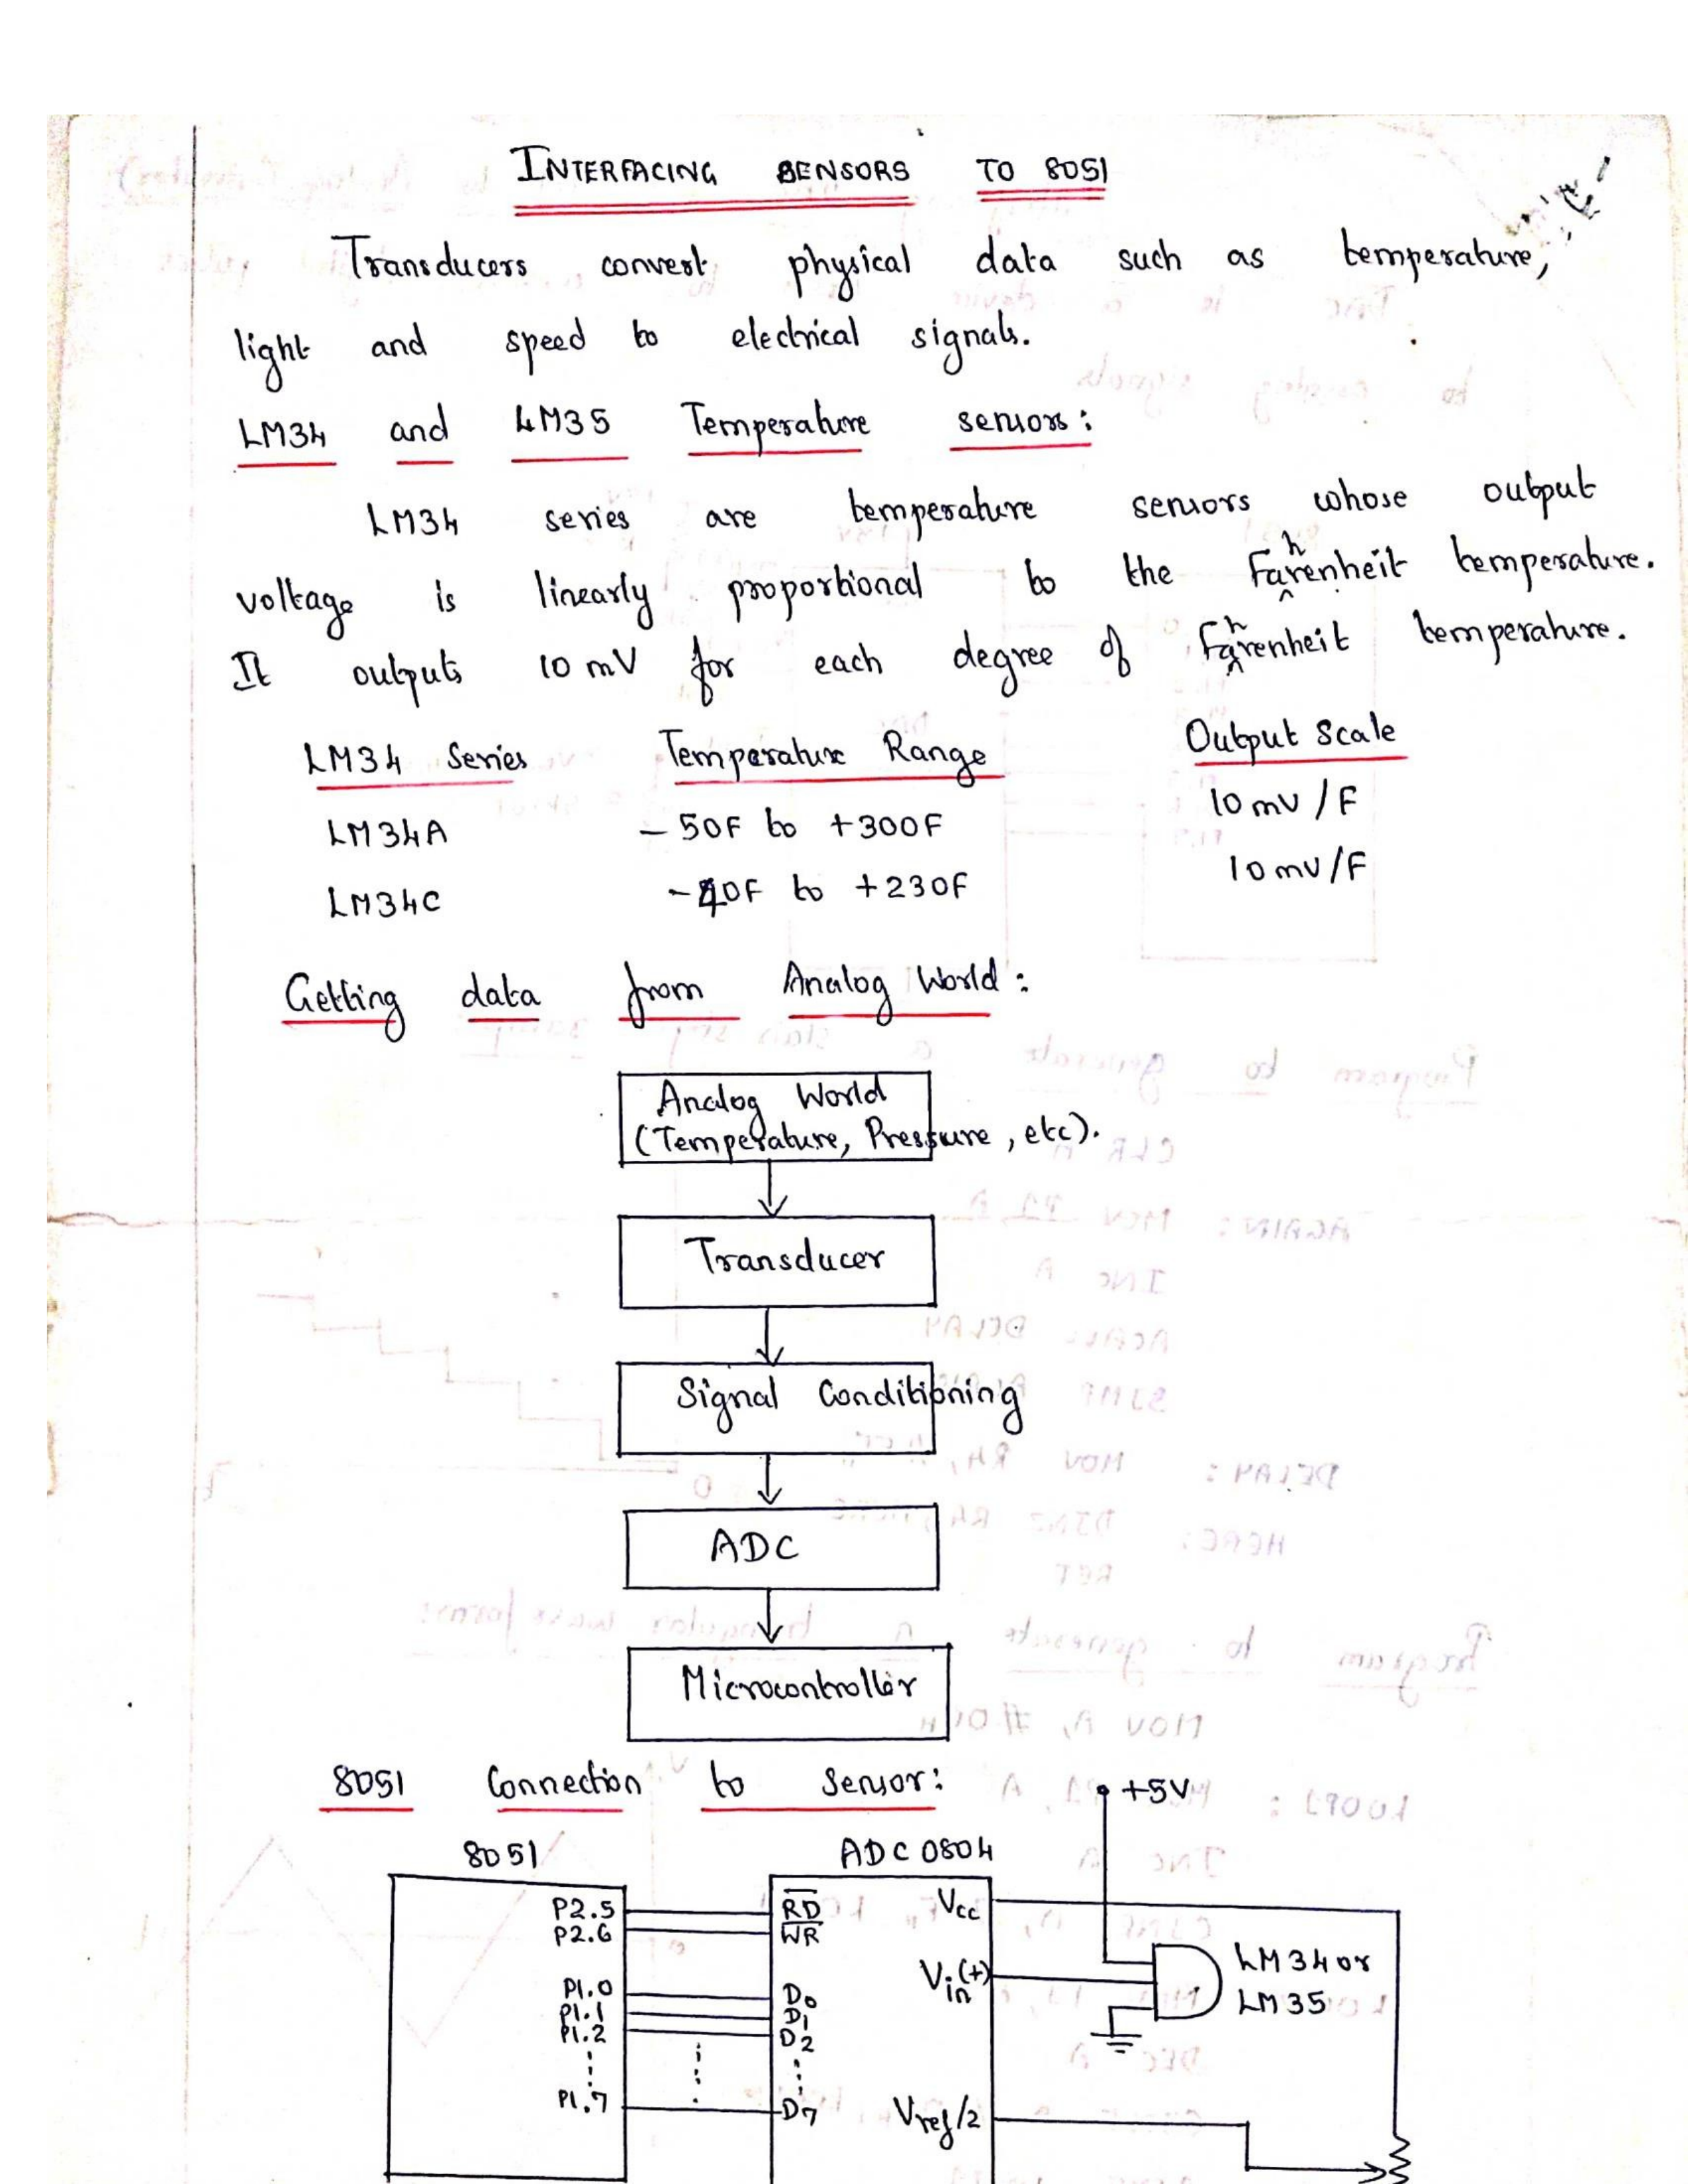 INTERFACING SENSORS TO 8051
Transducers convert physical data such as temperature,
light and speed to electrical signals.
LM34 and LM35 Temperature sensors:
LM34 series are temperature sensors whose output
voltage is linearly proportional to the Fahrenheit temperature.
It outputs 10 mV for each degree of Fahrenheit temperature.
LM34 Series Temperature Range Output Scale
LM34A - 50F to +300F 10 mV /F
LM34C -40F to +230F 10 mV/F
Getting data from Analog World:
Analog World
(Temperature, Pressure, etc).
Transducer
Signal Conditioning
ADC
Microcontroller
8051 Connection to Sensor:
+5V
8051 ADC 0804
P2.5 RD Vcc
P2.6 WR
LM34 or
LM35
Vin(+)
P1.0 D0
P1.1 D1
P1.2 D2
P1.7 D7 Vref/2